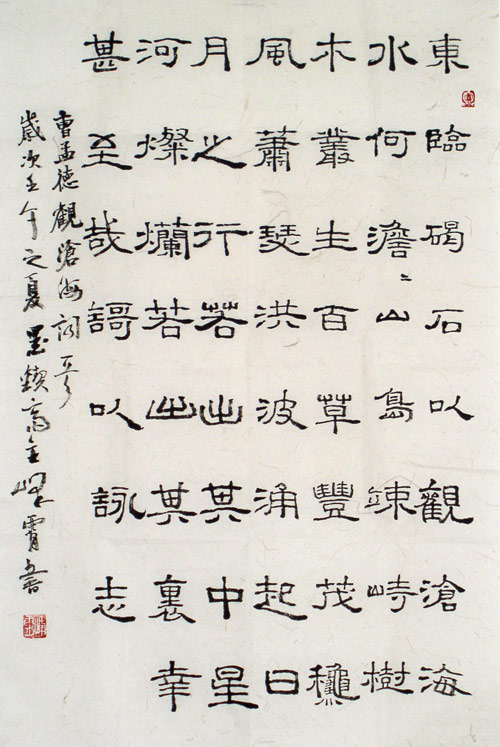 東臨碣石以觀滄海
水何澹〻山島竦峙樹
木叢生百草豐茂龝
風蕭瑟洪波涌起日
月之行若出其中星
河燦爛若出其裏幸
甚至哉謌以詠志
曹孟德觀滄海詞
歲次壬午之夏齋主霄書